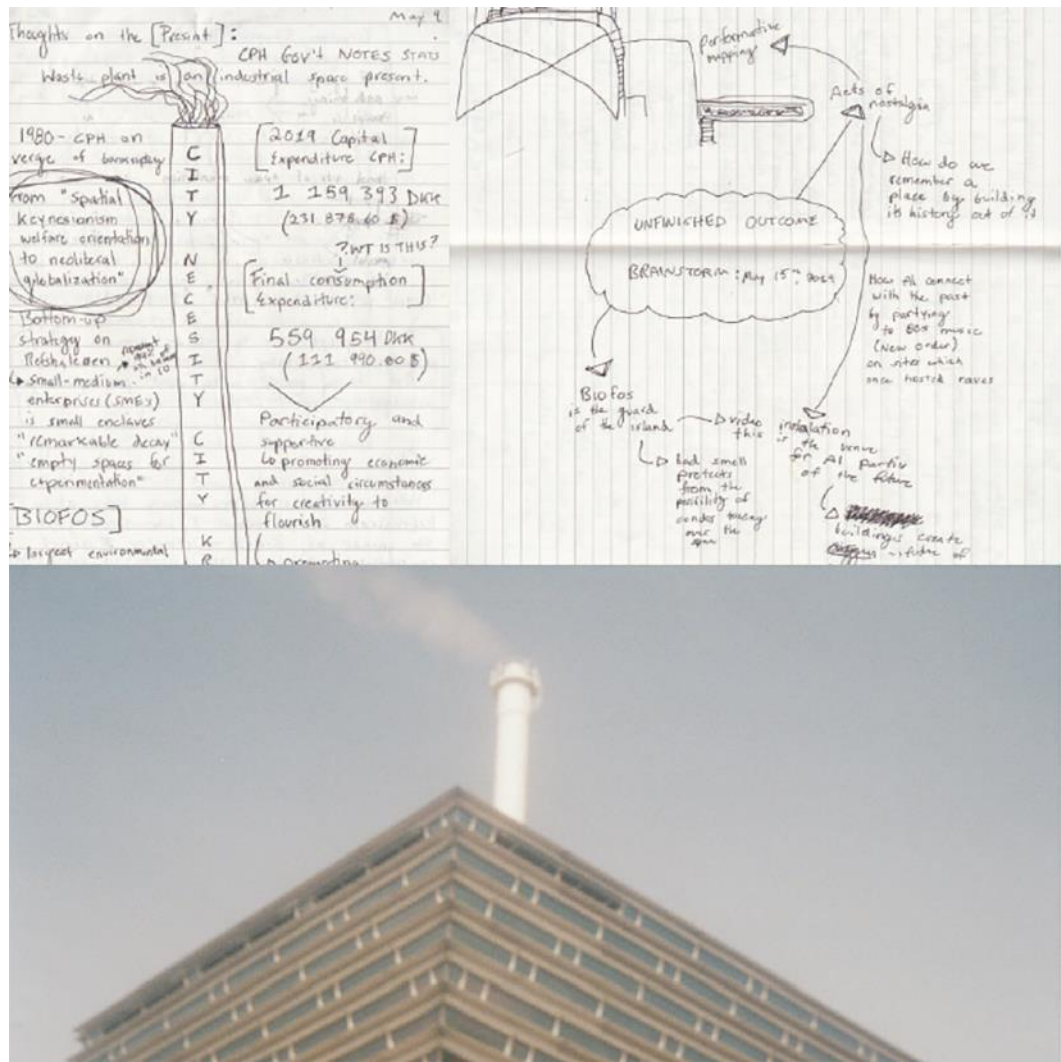 May 9
Thoughts on the [Present]:
CPH Gov't NOTES STATS
Waste plant is an industrial space present.
1980 - CPH on
verge of bankruptcy
From "spatial
keynesianism
welfare orientation
to neoliberal
globalization"
Bottom-up
strategy on
Refshaleøen
small-medium
enterprises (SMEs)
is small enclaves
"remarkable decay"
"empty spaces for
experimentation"
[BIOFOS]
largest environmental
CITY NECESSITY CITY
[2019 Capital
Expenditure CPH:]
1 159 393 DKK
(231 878.60 $)
?WT IS THIS?
[Final consumption
Expenditure:]
559 954 DKK
(111 990.80 $)
Participatory and
supportive
to promoting economic
and social circumstances
for creativity to
flourish
Performative
mapping
Acts of
nostalgia
How do we
remember a
place by building
its history out of it
UNFINISHED OUTCOME
BRAINSTORM: May 15th, 2019
connect
with the past
by partying
to 80s music
(New Order)
on sites which
once hosted raves
Biofos
is the guard
of the island
video
this
bad smell
protects
from the
of
over the
installation
is the venue
for
of the future
buildings create
future of